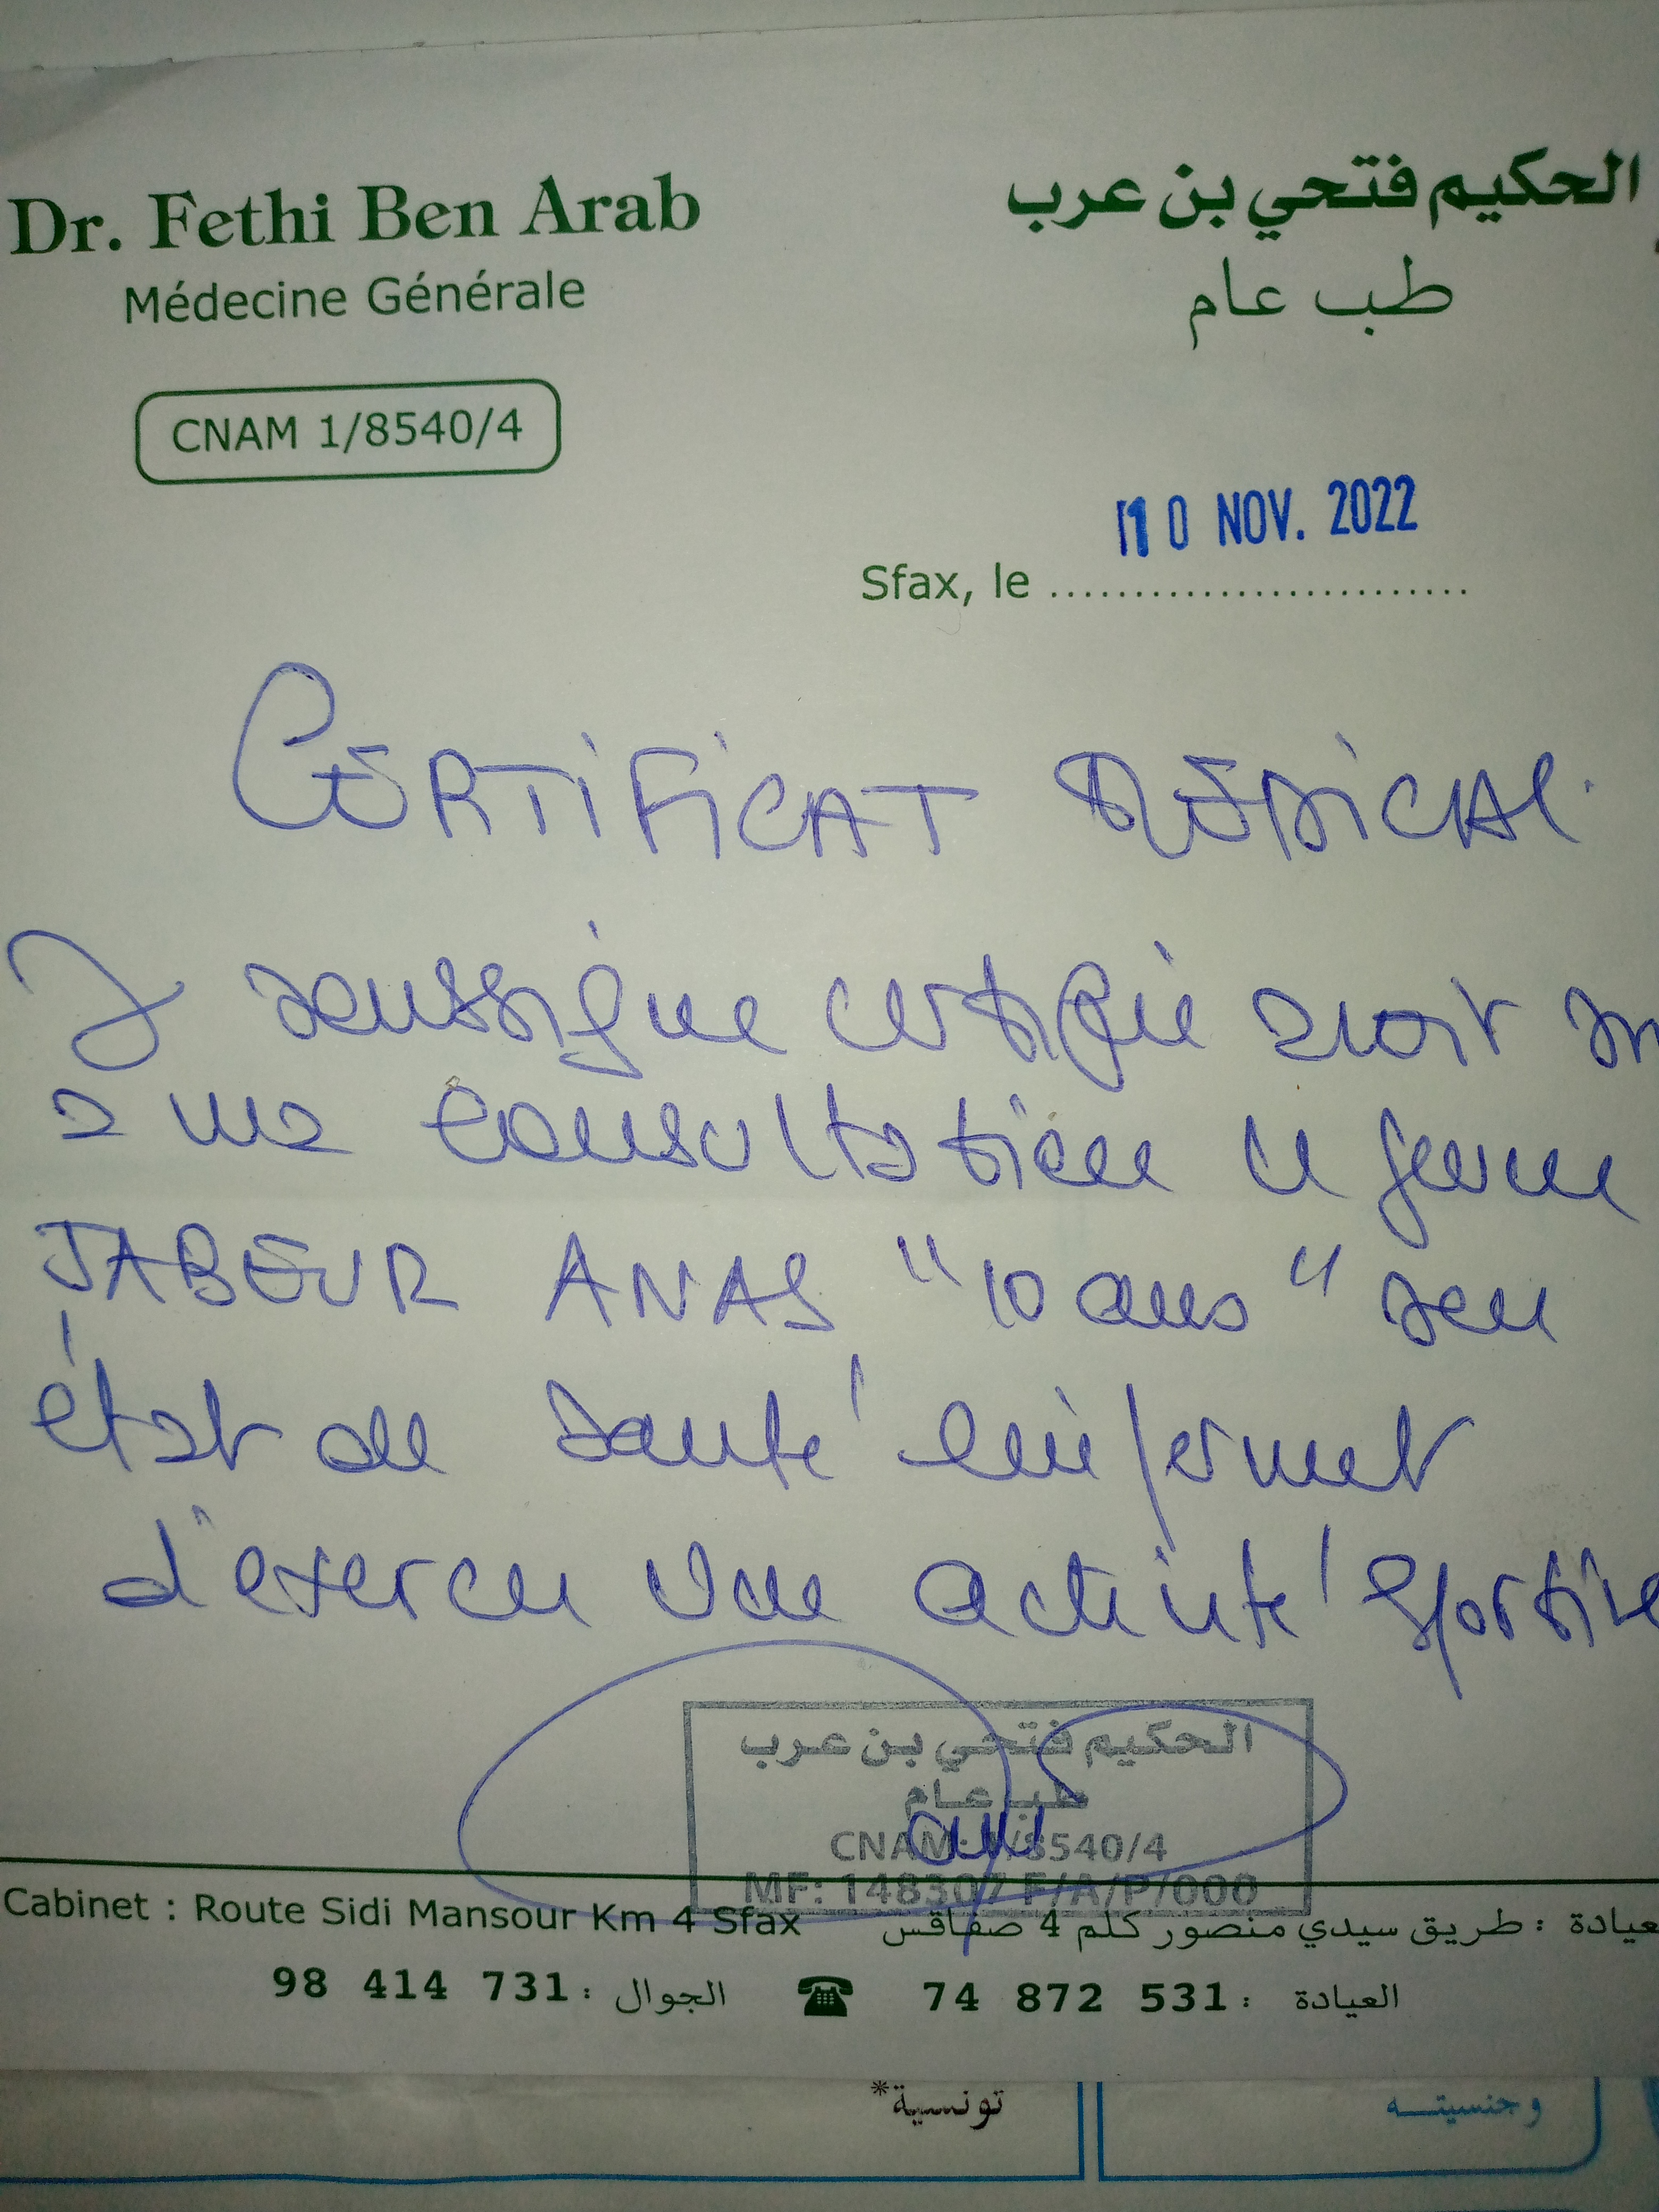 Dr. Fethi Ben Arab
الحكيم فتحي بن عرب
Médecine Générale
طب عام
CNAM 1/8540/4
10 NOV. 2022
Sfax, le ..........................
CERTIFICAT MÉDICAL.
J soussigne certifie avoir
a ma consultation le jeune
JABEUR ANAS "10 ans" son
état de santé lui permet
d'exercer une activité sportive
الحكيم فتحي بن عرب
طب عام
CNAM: 1/8540/4
MF: 148307 F/A/P/000
Cabinet : Route Sidi Mansour Km 4 Sfax
عيادة : طريق سيدي منصور كلم 4 صفاقس
98 414 731 : الجوال
العيادة : 74 872 531
تونسية*
وجنسيته